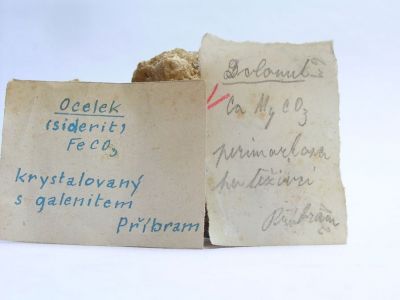 Ocelek
(siderit)
FeCO3
krystalovaný
s galenitem
Příbram
Dolomit
Ca Mg CO3
Příbram